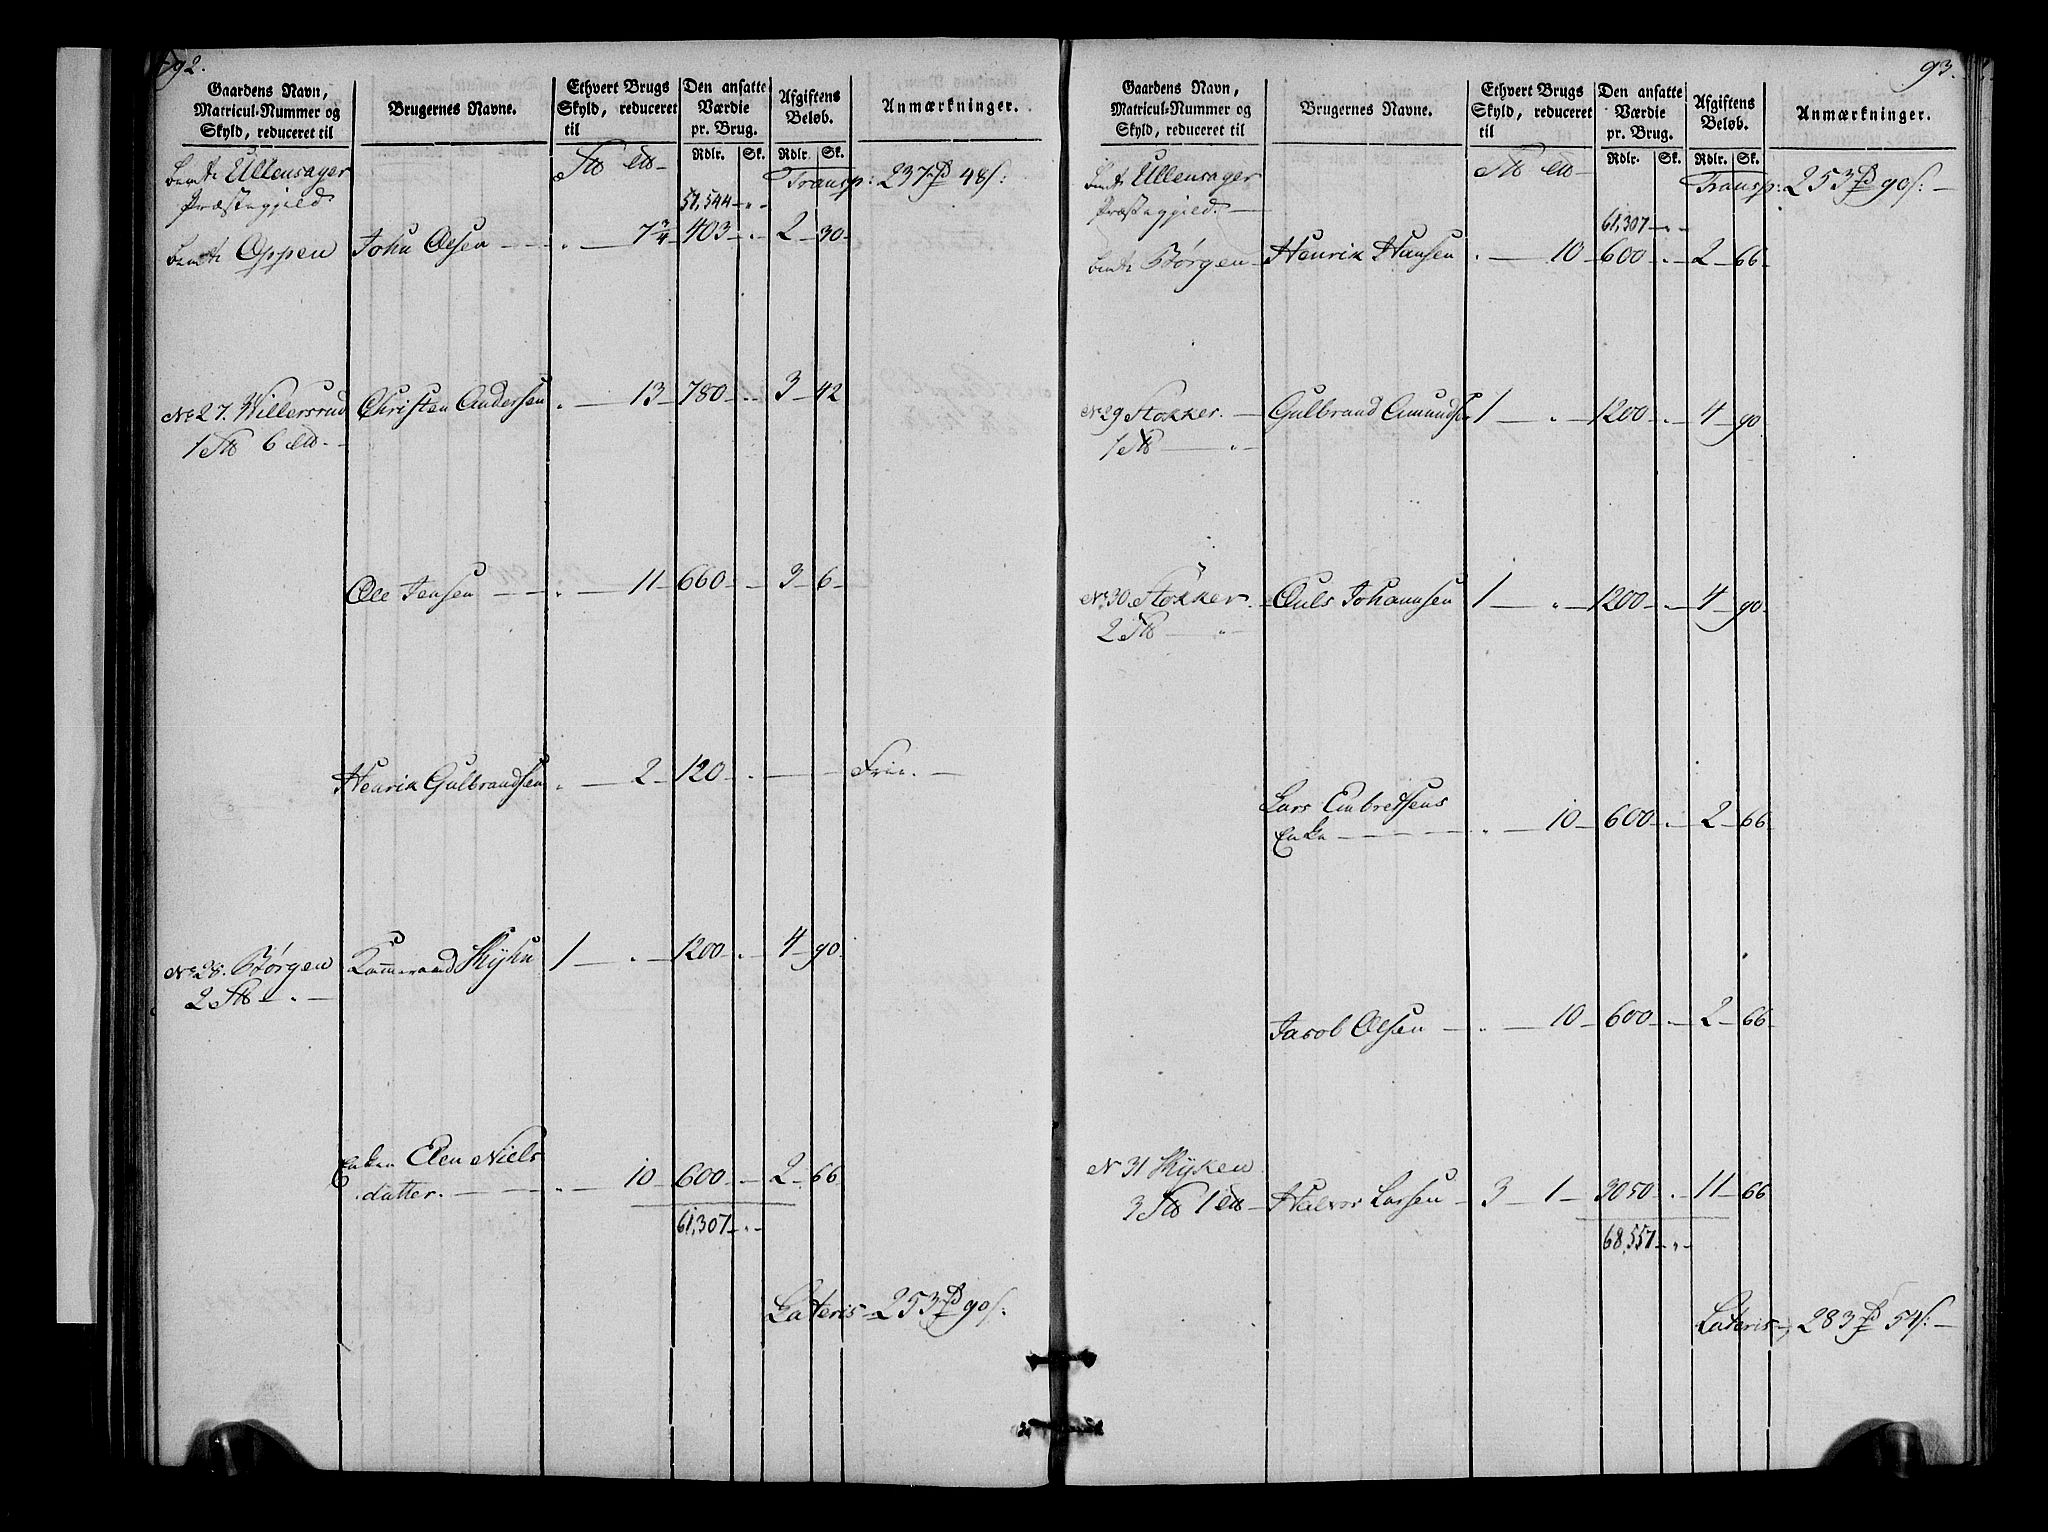 92.
Gaardens Navn, Matricul-Nummer og Skyld, reduceret til | Brugernes Navne. | Ethvert Brugs Skyld, reduceret til | Den ansatte Værdie pr. Brug. | Afgiftens Beløb. | Anmærkninger.
Rdlr. Sk. Rdlr. Sk.
Ullensager Transp: 237 48 s:
Præstegjeld 57,544
Oppen John Olsen 7 3/4 403 2 30
No 27. Willersrud Christen Andersen 13 780 3 42
1 6
Ole Jensen 11 660 3 6
Henrik Gulbrandsen 2 120 Frie.
No 28. Børgen Skyhn 1 1200 4 90
2
Enken Elen Niels
datter. 10 600 2 66
61,307
Lateris 253 90 s:
93.
Gaardens Navn, Matricul-Nummer og Skyld, reduceret til | Brugernes Navne. | Ethvert Brugs Skyld, reduceret til | Den ansatte Værdie pr. Brug. | Afgiftens Beløb. | Anmærkninger.
Rdlr. Sk. Rdlr. Sk.
Ullensager Transp: 253 90 s:
Præstegjeld. 61,307
Børgen Henrik Hansen 10 600 2 66
No 29 Stokker. Gulbrand Amundsen 1 1200 4 90
1
No 30. Stokker Ouls Johannsen 1 1200 4 90
2
Lars Embretsens
Enke 10 600 2 66
Jacob Olsen 10 600 2 66
N 31 Skyken
3 1 Halvor Larsen 3 1 3050 11 66
68,557
Lateris 283 54 s: